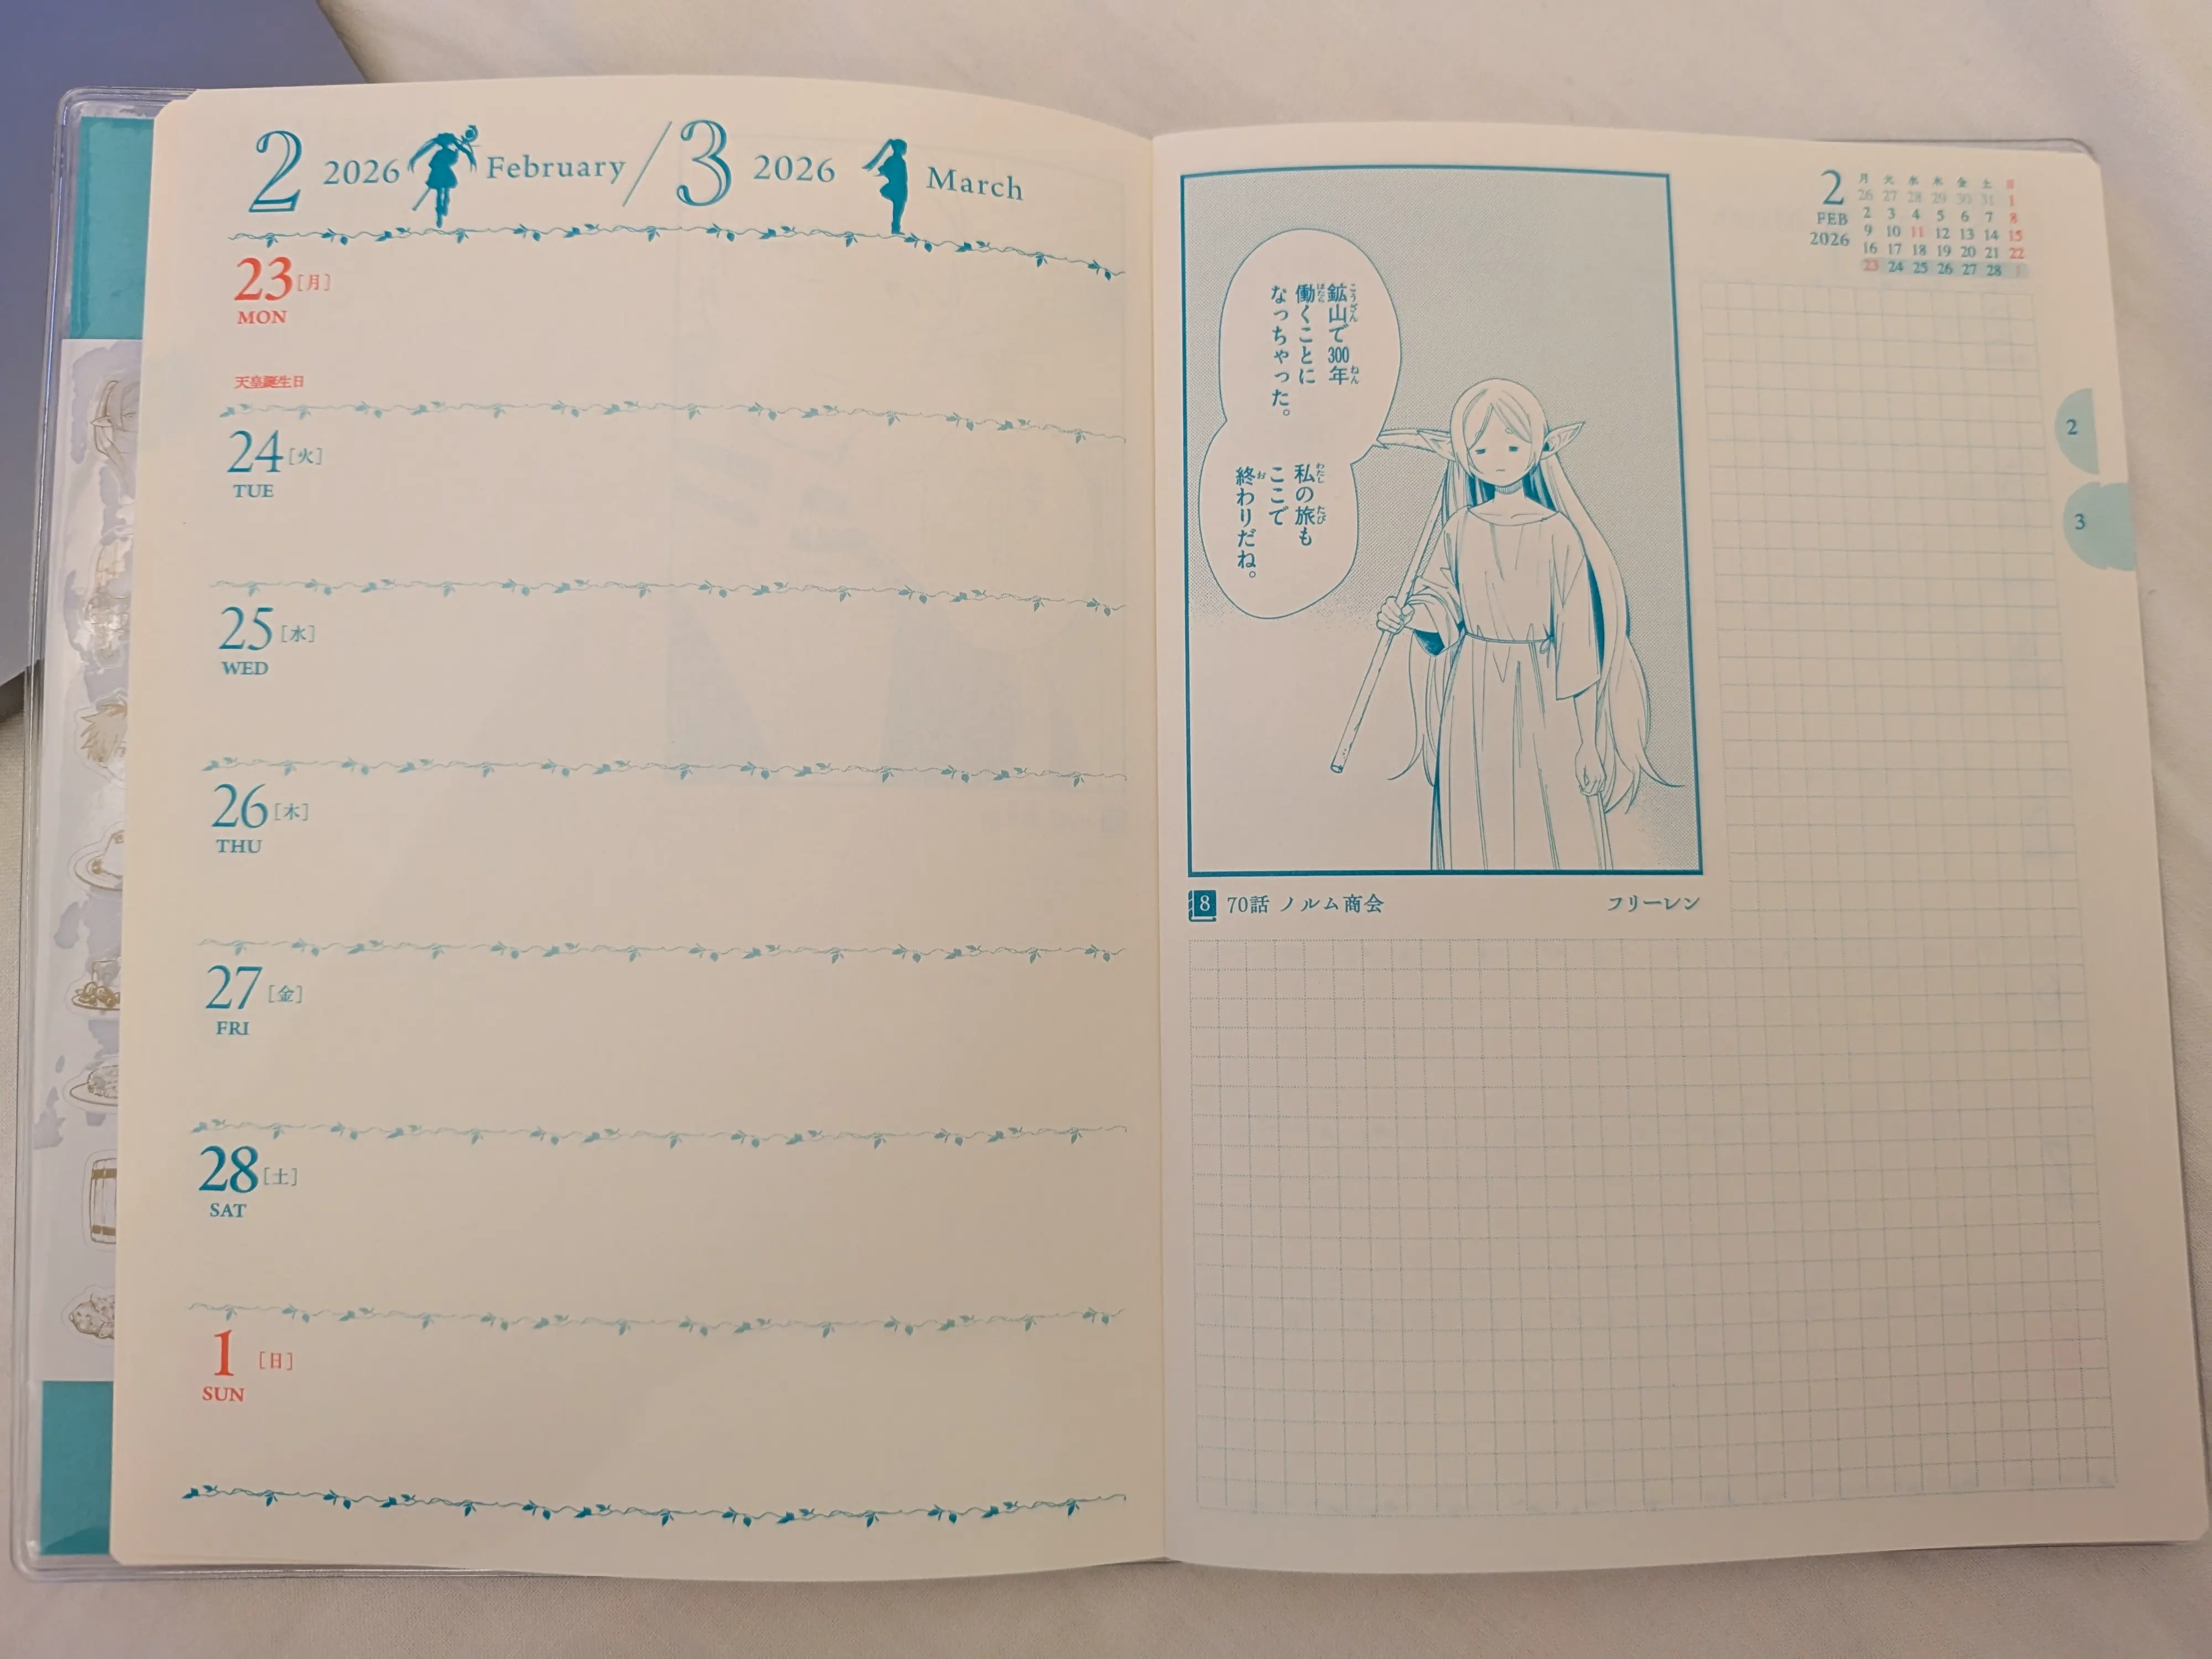 2 2026 February / 3 2026 March
23 [月]
MON
天皇誕生日
24 [火]
TUE
25 [水]
WED
26 [木]
THU
27 [金]
FRI
28 [土]
SAT
1 [日]
SUN
鉱山で300年
こうざん ねん
働くことに
はたら
なっちゃった。
私の旅も
わたし たび
ここで
終わりだね。
お
8 70話 ノルム商会 フリーレン
2
FEB
2026
月 火 水 木 金 土 日
26 27 28 29 30 31 1
2 3 4 5 6 7 8
9 10 11 12 13 14 15
16 17 18 19 20 21 22
23 24 25 26 27 28 1
2
3